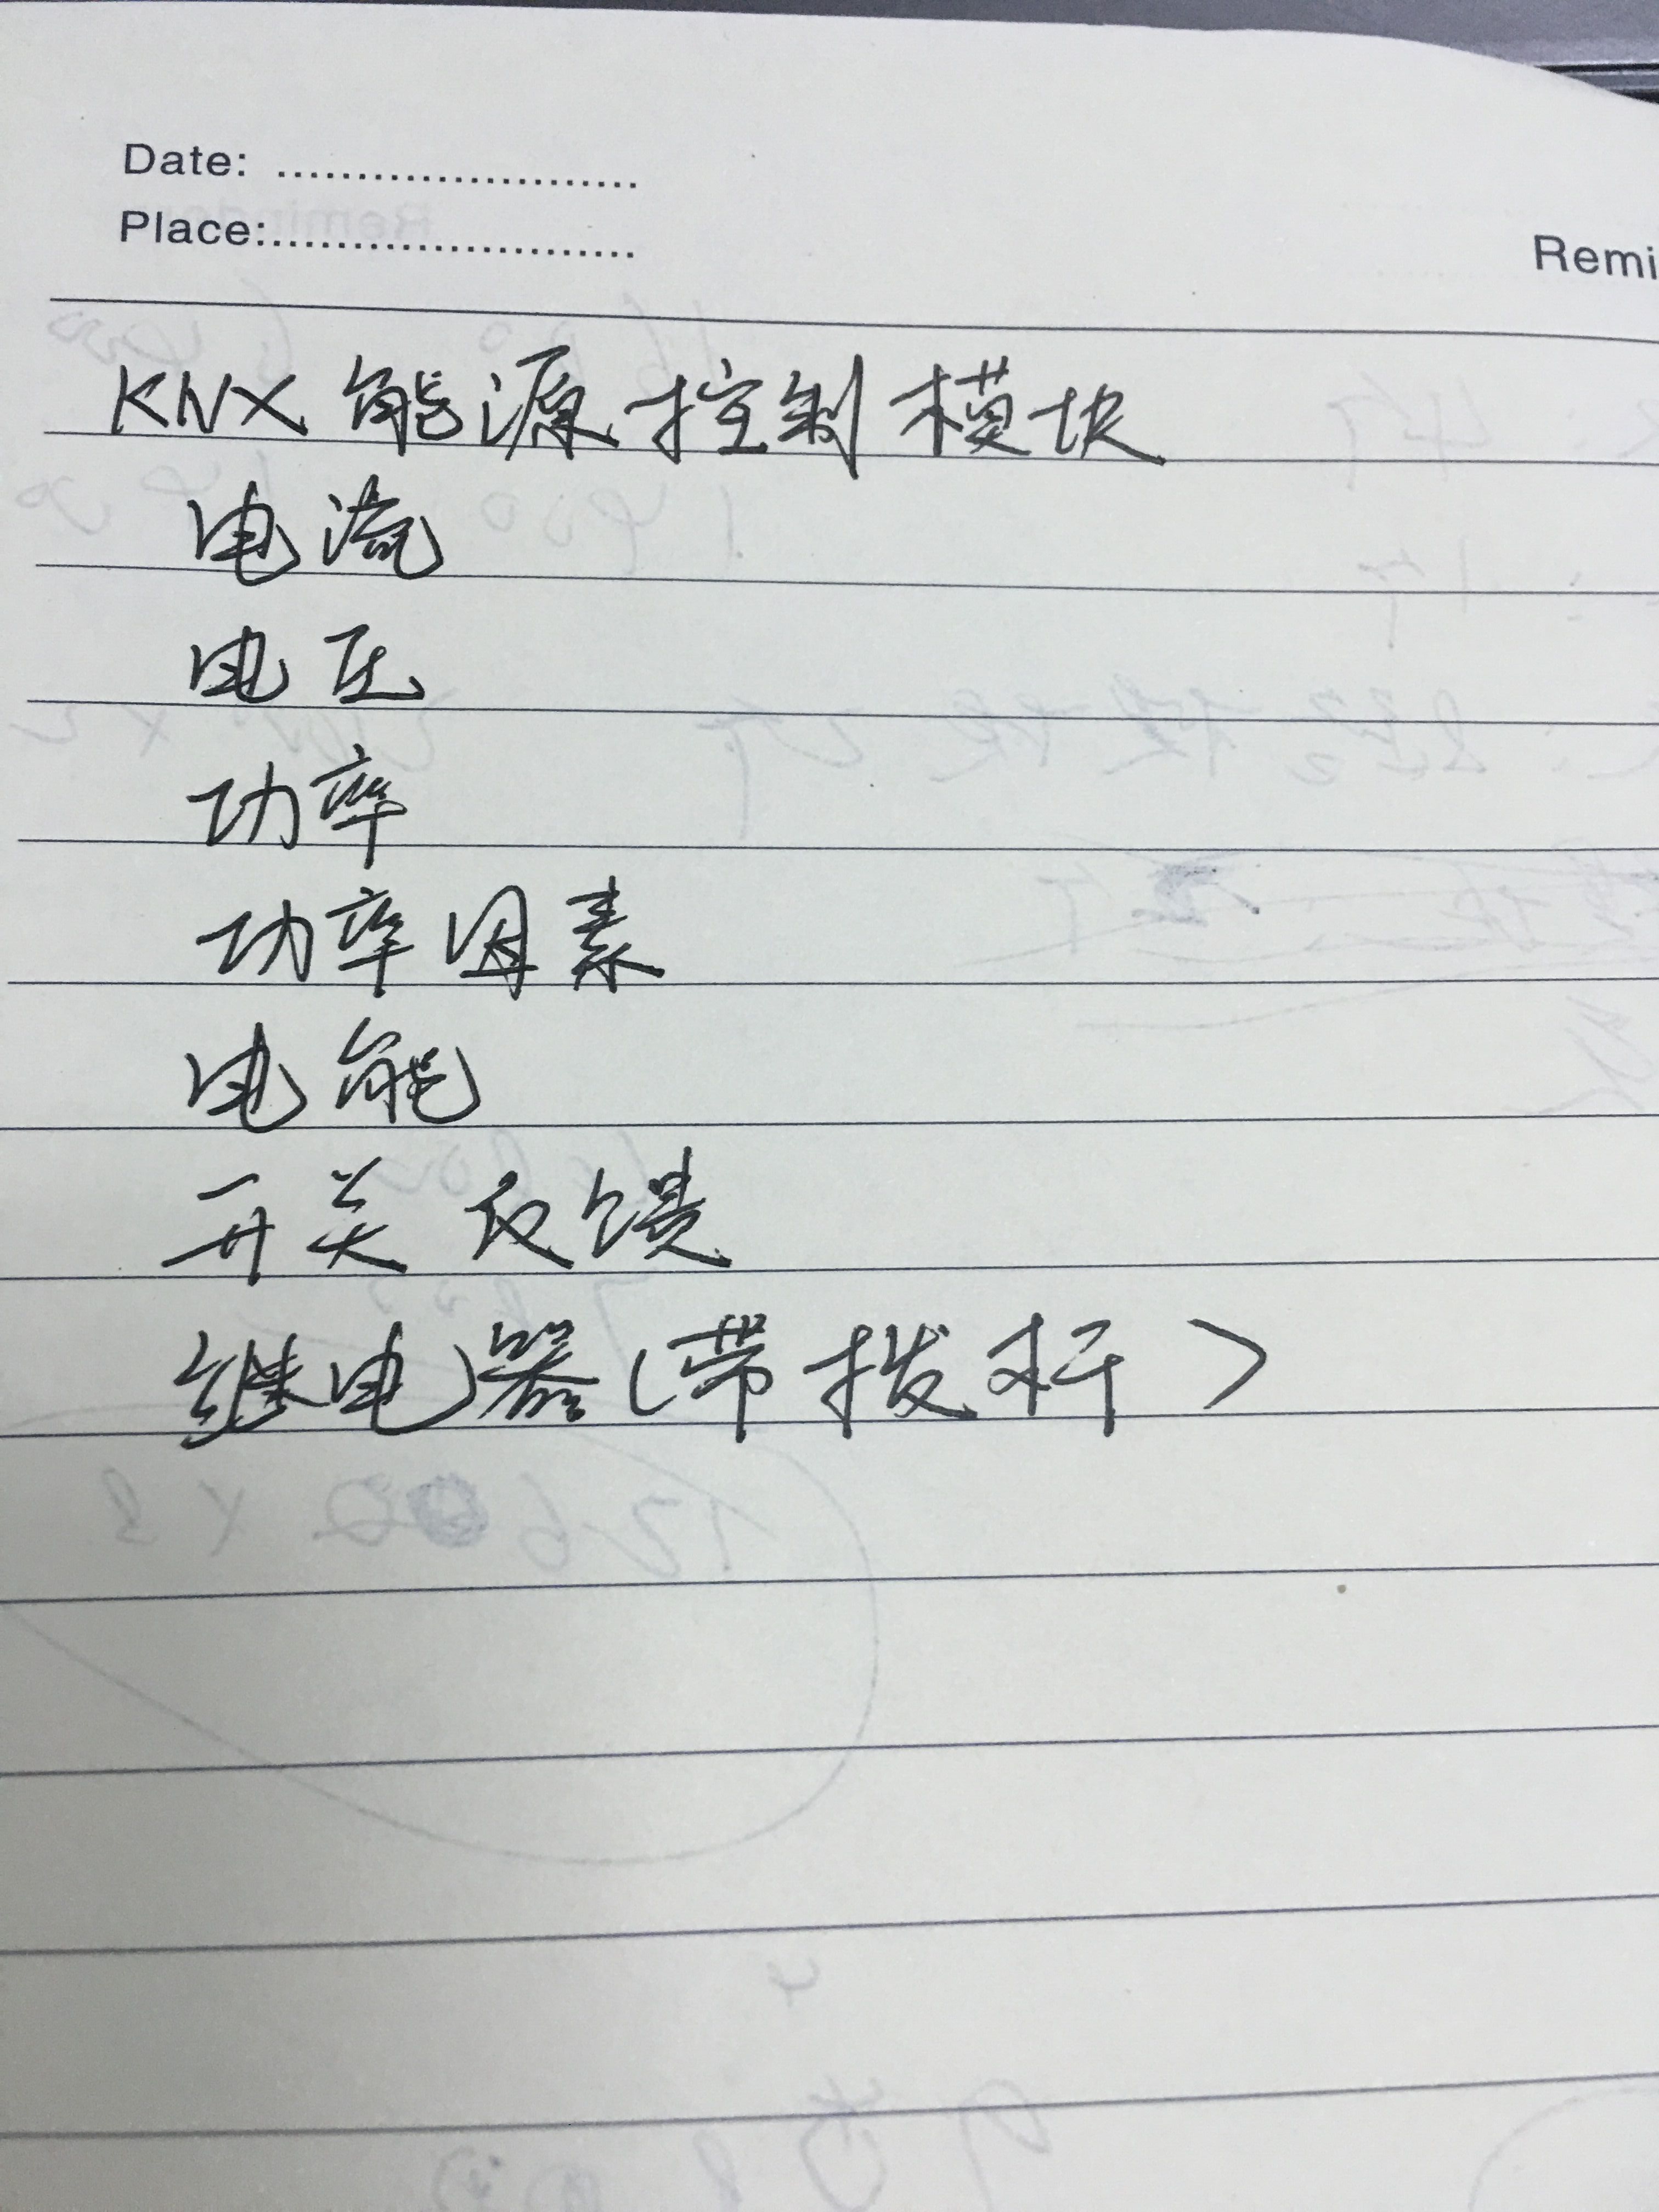 Date: ........................
Place:........................
Remi
KNX能源控制模块
电流
电压
功率
功率因素
电能
开关反馈
继电器(带拨杆)